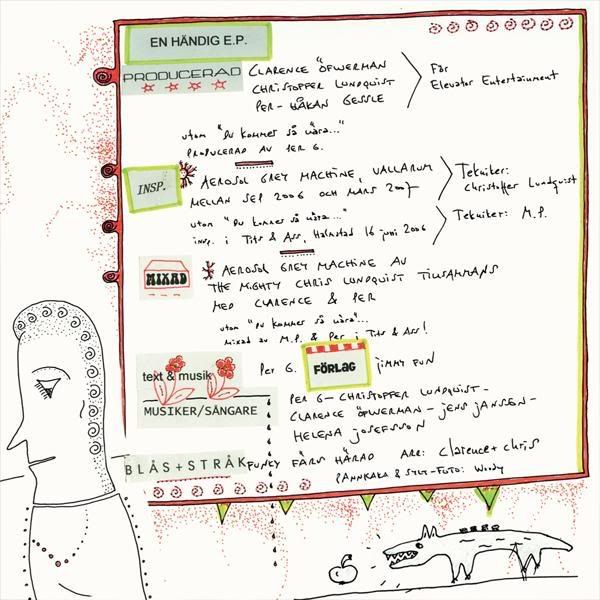 EN HÄNDIG E.P.
PRODUCERAD CLARENCE ÖFWERMAN
CHRISTOFFER LUNDQUIST
PER-HÅKAN GESSLE
För
Elevator Entertainment
utom "Du kommer så nära..."
PRODUCERAD AV PER G.
INSP. AEROSOL GREY MACHINE, VALLARUM
MELLAN SEP 2006 OCH MARS 2007
Tekniker:
Christoffer Lundquist
utom "Du kommer så nära..."
insp. i Tits & Ass, Halmstad 16 juni 2006
Tekniker: M.P.
MIXAD AEROSOL GREY MACHINE AV
THE MIGHTY CHRIS LUNDQUIST TILLSAMMANS
MED CLARENCE & PER
utom "Du kommer så nära"...
mixad av M.P. & Per i Tits & Ass!
text & musik Per G. FÖRLAG JIMMY FUN
MUSIKER/SÅNGARE PER G – CHRISTOFFER LUNDQUIST –
CLARENCE ÖFWERMAN – JENS JANSSON –
HELENA JOSEFSSON
BLÅS+STRÅK FUNKY FÄRS HÄRAD ARR: Clarence + Chris
PANNKAKA & SYLT-FOTO: Woody